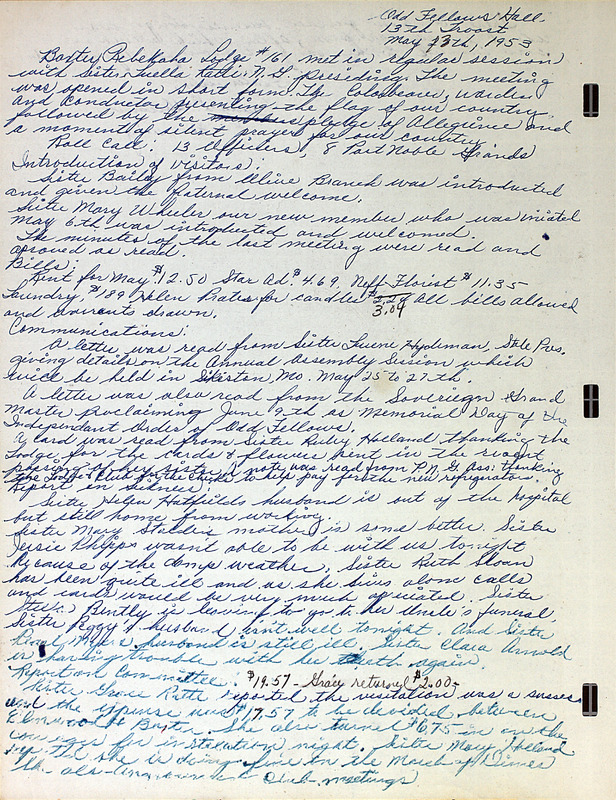 Odd Fellows Hall.
13th Troost
May 13th, 1953
Baxter Rebekaha Lodge #61 met in regular session
with Sister Luella Kattie N.G. presiding. The meeting
was opened in short form. The Colorbearer, warden
and Conductor presenting the flag of our country
followed by the pledge of Allegience and
a moment of silent prayer for our country.
Roll Call: 13 Officers, 8 Past Noble Grands
Introduction of visitors:
Sister Bailey from Olive Branch was introduced
and given the fraternal welcome.
Sister Mary Wheeler our new member who was iniated
May 6th was introduced and welcomed.
The minutes of the last meeting were read and
aproved as read.
Bills:
Rent for May $12.50 Star Ad. $4.69, Neff Florist $11.35
Laundry, $1.89, Helen Bates for candles 3.04 All bills allowed
and warrents drawn.
Communications:
A letter was read from Sister Hydeman, State Pres.
giving details on the Annual Assembly Session which
will be held in Mo. May 25 to 27th.
A letter was also read from the Sovereign Grand
Master proclaiming June 9th as Memorial Day of the
Independant Order of Odd Fellows.
A card was read from Sister Ruby Holland thanking the
Lodge for the cards & flowers sent in the recent
passing of her sister. A note was read from P.N.G. Ass. thanking
the Lodge & Club for the checks to help pay for the new refrigerator.
Report in Sickness:
Sister Helen Hatfields husband is out of the hospital
but still home from working.
Sister Mary mother is some better. Sister
Jessie Philips wasn't able to be with us tonight
because of the damp weather. Sister Ruth Sloan
has been quite ill and as she lives alone calls
and cards would be very much apriciated. Sister
Bently is leaving to go to her Uncle's funeral,
Sister Peggy's husband isn't well tonight. And Sister
Pearl husband is still ill. Sister Clara Arnold
is having trouble with her teeth again.
Report on Committee: $19.57 - Gracy returned $2.00-
Sister Grace Kattie reported the visitation was a success
and the expense was $17.57 to be divided between
Elmwood & Baxter. She also turned $6.75 in on the
for installation night. Sister Mary Holland
she is doing fine on the March of Dimes
Club meetings.